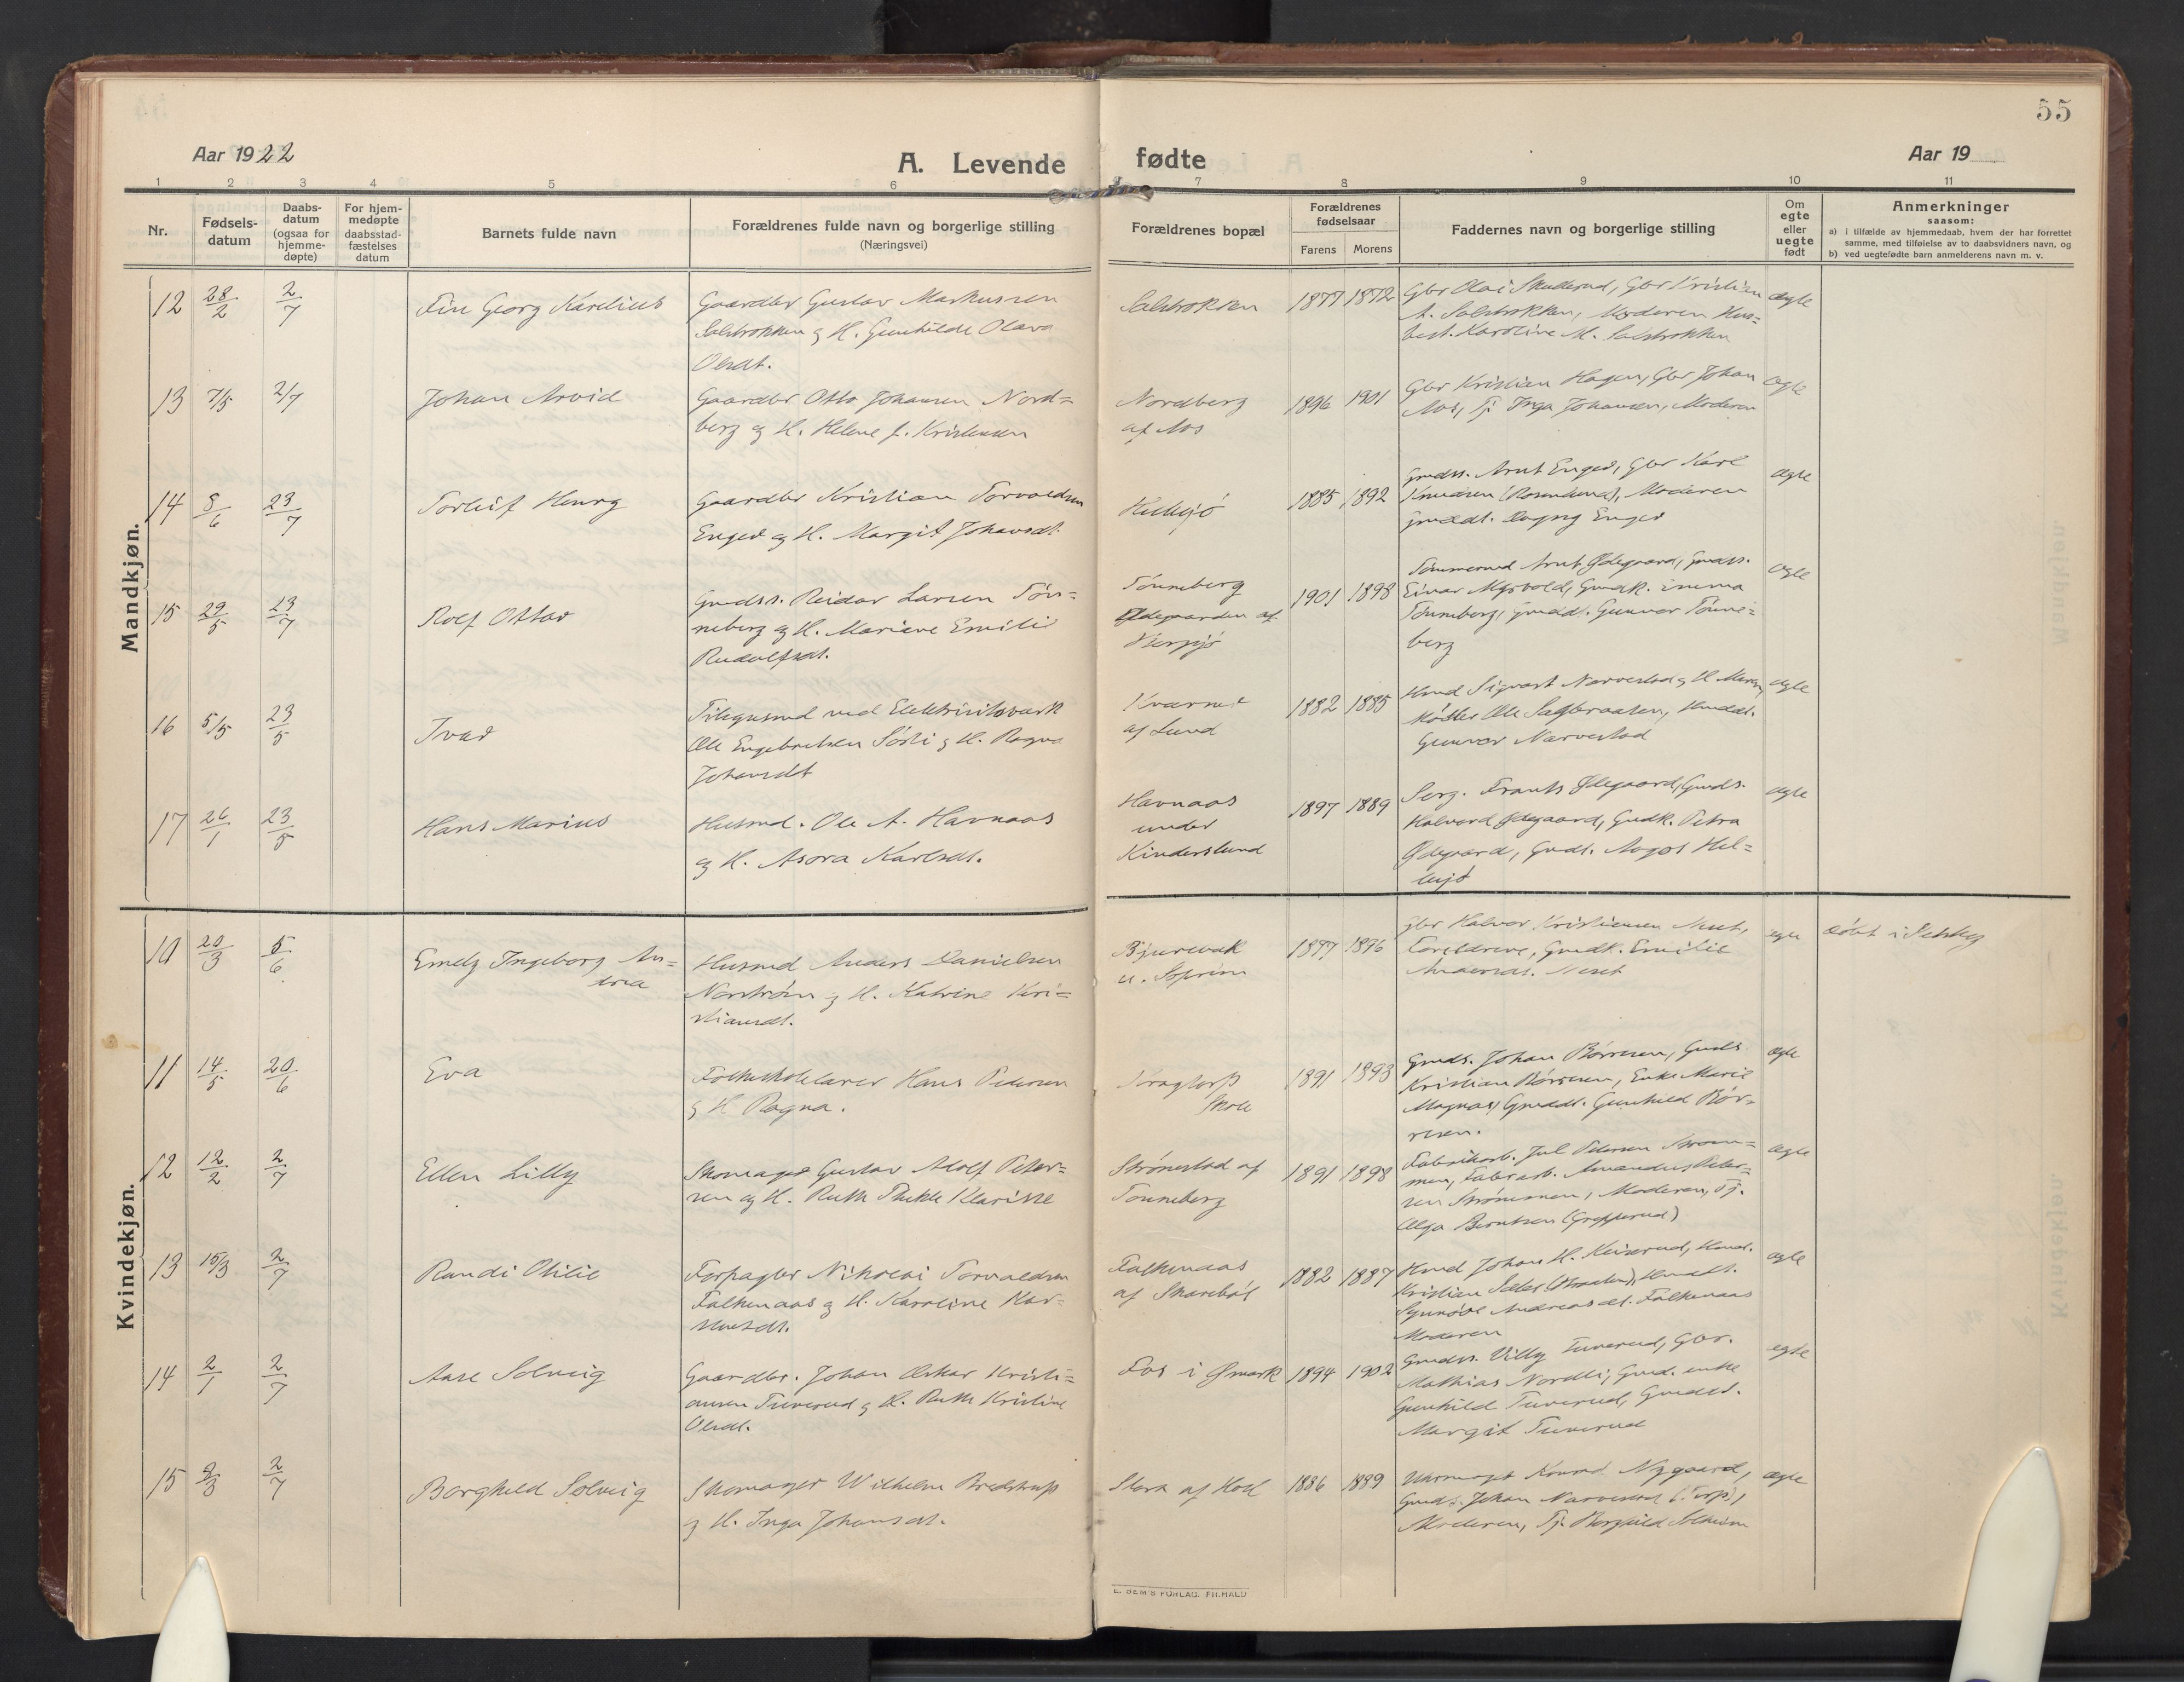 55
Aar 1922
A. Levende fødte
Aar 19
1 2 3 4 5 6 7 8 9 10 11
Nr.
Fødsels-
datum
Daabs-
datum
(ogsaa for
hjemme-
døpte)
For hjem-
medøpte
daabsstad-
fæstelses
datum
Barnets fulde navn
Forældrenes fulde navn og borgerlige stilling
(Næringsvei)
Forældrenes bopæl
Forældrenes
fødselsaar
Farens Morens
Faddernes navn og borgerlige stilling
Om
egte
eller
uegte
født
Anmerkninger
saasom:
a) i tilfælde av hjemmedaab, hvem der har forrettet
samme, med tilføielse av to daabsvidners navn, og
b) ved uegtefødte barn anmelderens navn m. v.
Mandkjøn.
12 28/2 2/7
Georg Karelius
Gaardbr Gustav Markussen
Solbrokken og H. Gunhilde Olava
Olsdt.
1877 1872
Gbr Olai Skuderud, Gbr Kristian
A. Solbrokken, Moderen
Karoline M. Solbrokken
ægte
13 7/5 2/7
Johan Arvid
Gaardbr Otto Johansen Nord=
berg og H. Helene J. Kristensen
Nordberg
af Aos
1896 1901
Gbr Kristian Hagen, Gbr Johan
Aos, Tj Inga Johansen, Moderen
ægte
14 8/6 23/7
Torleif Henry
Gaardbr Kristian Torvaldsen
Enger og H. Margit Johansdt.
1885 1892
Gmdss. Arnt Enger, Gbr Karl
Knudsen (Rosenlund), Moderen
Gmddt. Dagny Enger
ægte
15 29/5 23/7
Rolf Ottar
Gmdss. Reidar Larsen Tøn=
neberg og H. Mariane Emilie
Rudolfsdt.
Tønneberg
Ødegaarden af
1901 1898
Tømmermd Arnt Ødegaard, Gmdss.
Einar Myrvold, Gmdk.
Tønneberg, Gmdd. Gunvor Tønne=
berg
ægte
16 5/5 23/5
Ivar
ved Elektricitsværk
Ole Engebretsen Sørli og H. Ragna
Johansdt
af Lund
1882 1885
Hmd Sigvart Narvestad og H
Ole Sagbraaten, Hmddt.
Gunvor Narvestad
ægte
17 26/1 23/5
Hans Marius
Husmd. Ole A. Havnaas
og H. Asora Karlsdt.
Havnaas
under
Kinderslund
1897 1889
Serg. Frants Ødegaard, Gmds.
Halvard Ødegaard, Gmdk. Petra
Ødegaard, Gmdt. Aagot Hel=
ægte
Kvindekjøn.
10 20/3 5/6
Emely Ingeborg An=
drea
Husmd Anders Danielsen
Norstrøm og H. Katrine Kri=
stiansdt.
Bjurebak
1877 1896
Gbr Halvor Kristiansen
Forældrene, Gmdk. Emilie
egte
døbt i
11 14/5 20/6
Eva
Folkeskolelærer Hans Pedersen
og H Ragna.
Skole
1891 1893
Gmds. Johan Børresen, Gmds
Kristian Børresen, Enke Marie
Magnas, Gmddt. Gunhild Bør=
resen.
ægte
12 12/2 2/7
Ellen Lilly
Skomager Gustav Adolf Peter=
sen og H. Ruth Thekle Klarisse
Strønestad af
Tonneberg
1891 1898
Fabrikarb. Jul Petersen Strøm=
men, Fabrarb. Amandus Peter=
sen Strømmen, Moderen, Tj.
Olga Berntsen (Grepperud)
ægte
13 15/3 2/7
Randi Otilie
Forpagter Nikolai Torvaldsen
Falkenaas og H. Karoline Kar=
Falkenaas
af Skarebøl
1882 1887
Hmd Johan H. Keiserud, Hmd.
Kristian
Andreasdt. Falkenaas
Moderen
ægte
14 2/1 2/7
Aase Solveig
Gaardbr. Johan Oskar Kristi=
ansen Tuverud og H. Ruth Kristine
Olsdt.
Fos i Ømark
1894 1902
Gmdss. Villy Tuverud, Gbr.
Mathias Nordli, Gmd. enke
Gunhild Tuverud, Gmddt.
Margit Tuverud
egte
15 2/3 2/7
Borghild Solveig
Skomager Wilhelm Bredstrup
og H. Inga Johansdt.
1886 1889
Uhrmager Konrad Nygaard,
Gmds. Johan Narvestad (Torp),
Moderen, Tj. Borghild Solheim
ægte
E. SEM'S FORLAG. FR.HALD